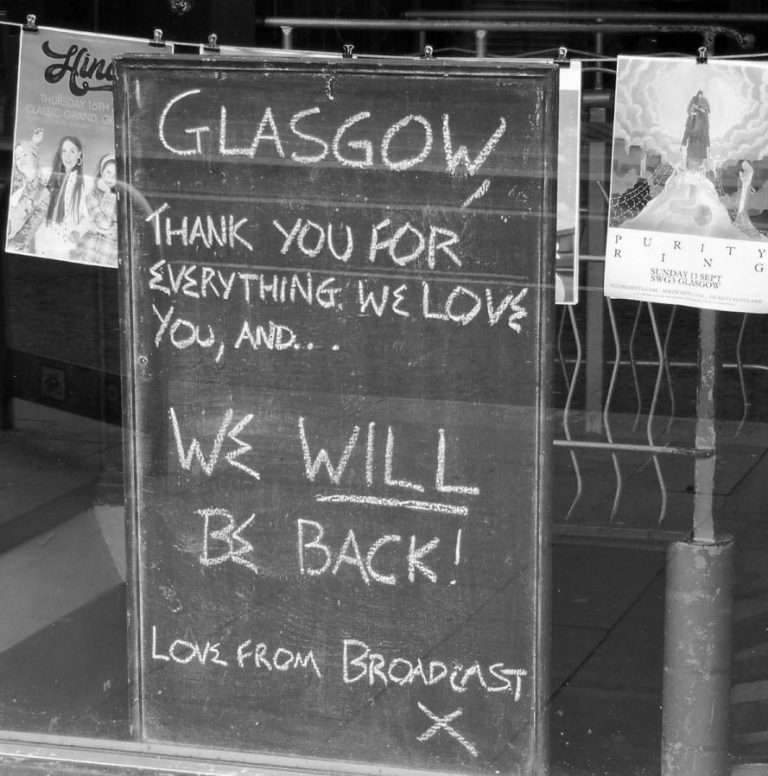 GLASGOW,
THANK YOU FOR
EVERYTHING. WE LOVE
YOU, AND...
WE WILL
BE BACK!
LOVE FROM BROADCAST
X
THURSDAY 16TH
CLASSIC GRAND,
PURITY
RING
SUNDAY 13 SEPT
SWG3 GLASGOW